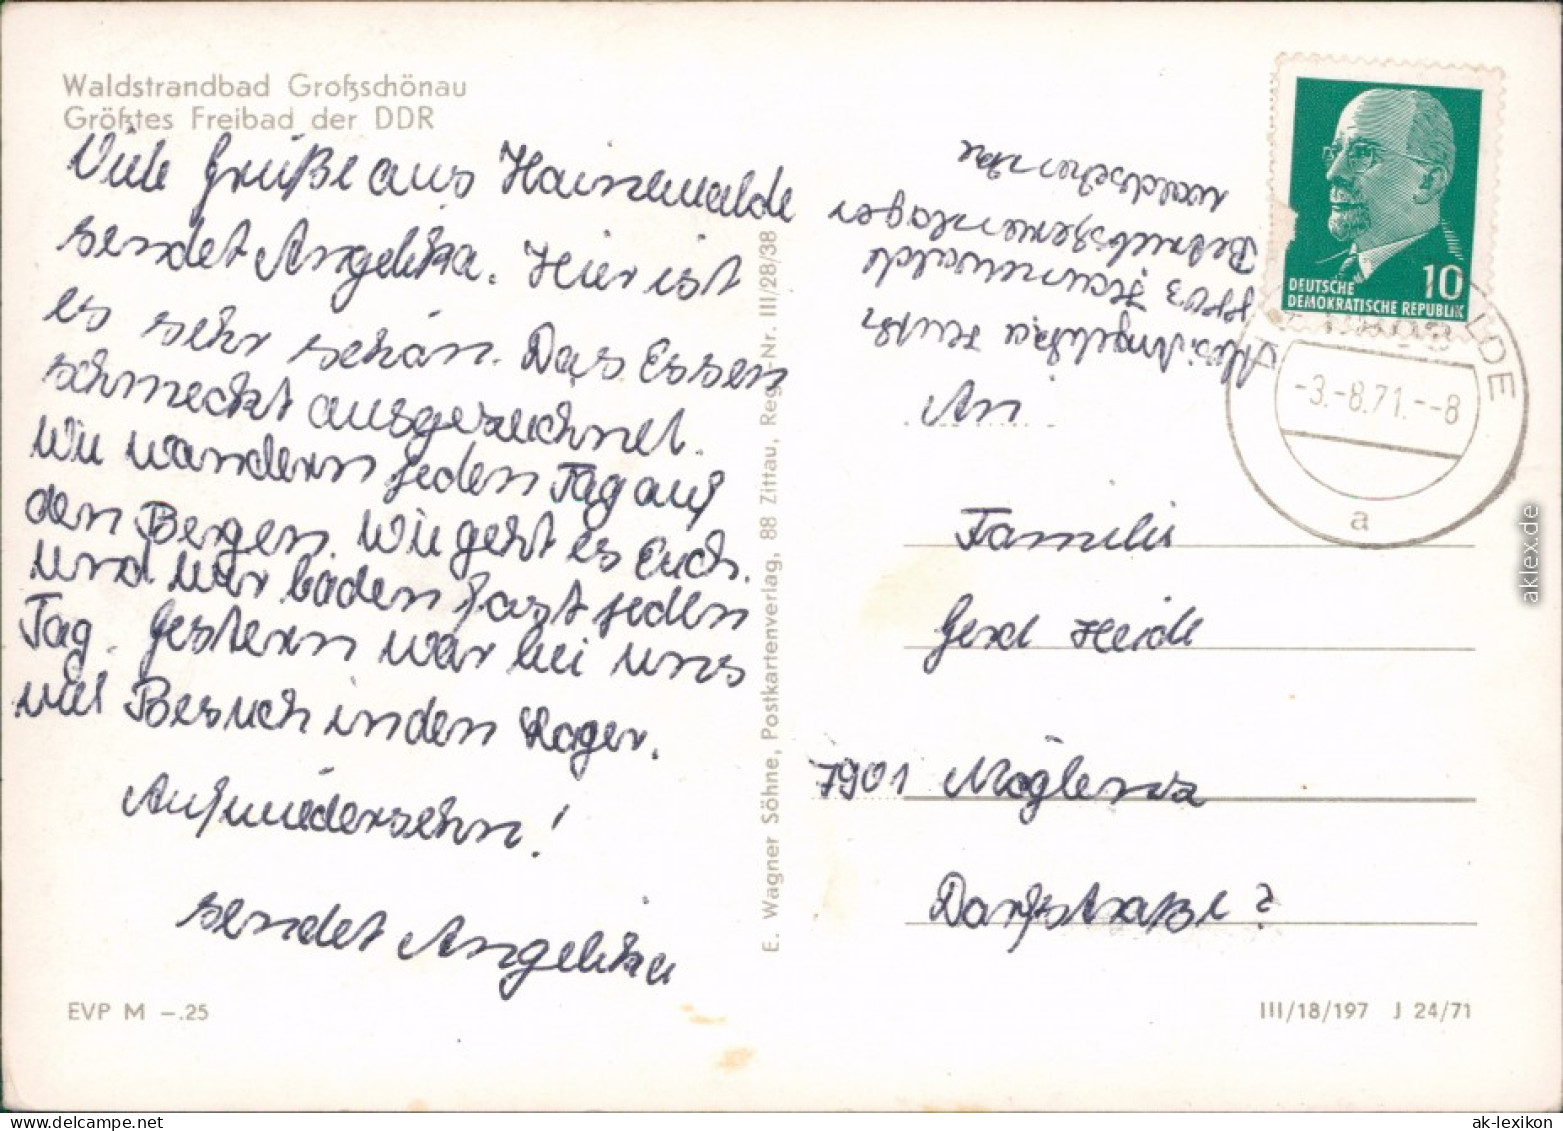 Waldstrandbad Großschönau
Größtes Freibad der DDR
Viele Grüße aus Hainewalde
sendet Angelika. Hier ist
es sehr schön. Das Essen
schmeckt ausgezeichnet.
Wir wandern jeden Tag auf
den Bergen. Wie geht es Euch.
und wir baden fast jeden
Tag. Gestern war bei uns
viel Besuch in den Lager.
Aufwiedersehn!
sendet Angelika
EVP M –.25
E. Wagner Söhne, Postkartenverlag, 88 Zittau, Reg.-Nr. III/28/38
Abs. Angelika
8803 Hainewalde
Betriebsferienlager
Waldschenke
DEUTSCHE
DEMOKRATISCHE REPUBLIK
10
8803
LDE
-3.-8.71.--8
a
An
Familie
Gerd Heide
7901 Möglenz
Dorfstraße 2
III/18/197 J 24/71
aklex.de
ak-lexikon